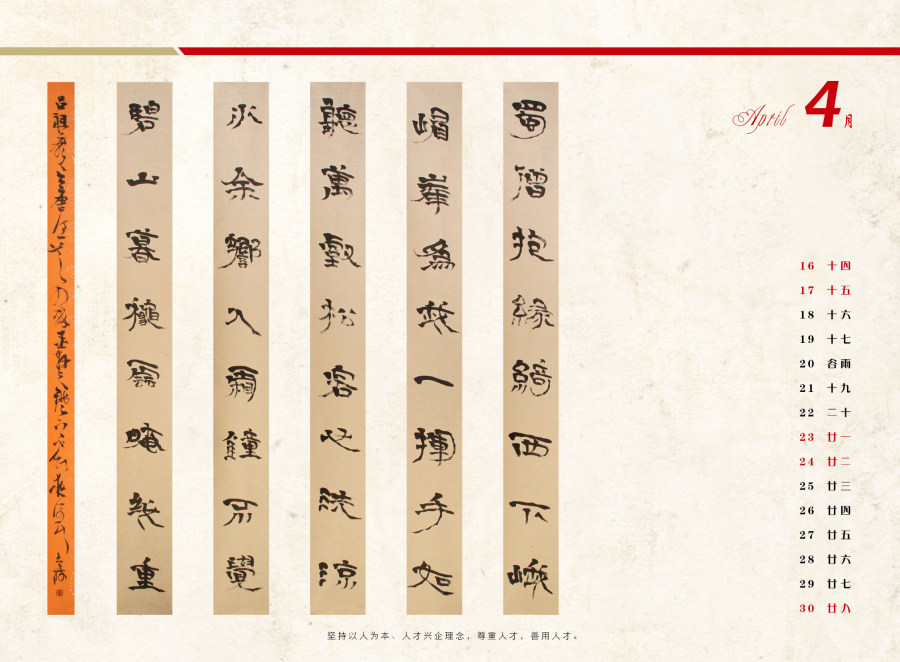 April 4月
蜀僧抱緑綺西下峨
嵋峯為我一揮手如
聽萬壑松客心洗流
水余響入霜鐘不覺
碧山暮龝雲暗幾重
16 十四
17 十五
18 十六
19 十七
20 谷雨
21 十九
22 二十
23 廿一
24 廿二
25 廿三
26 廿四
27 廿五
28 廿六
29 廿七
30 廿八
坚持以人为本、人才兴企理念,尊重人才,善用人才。